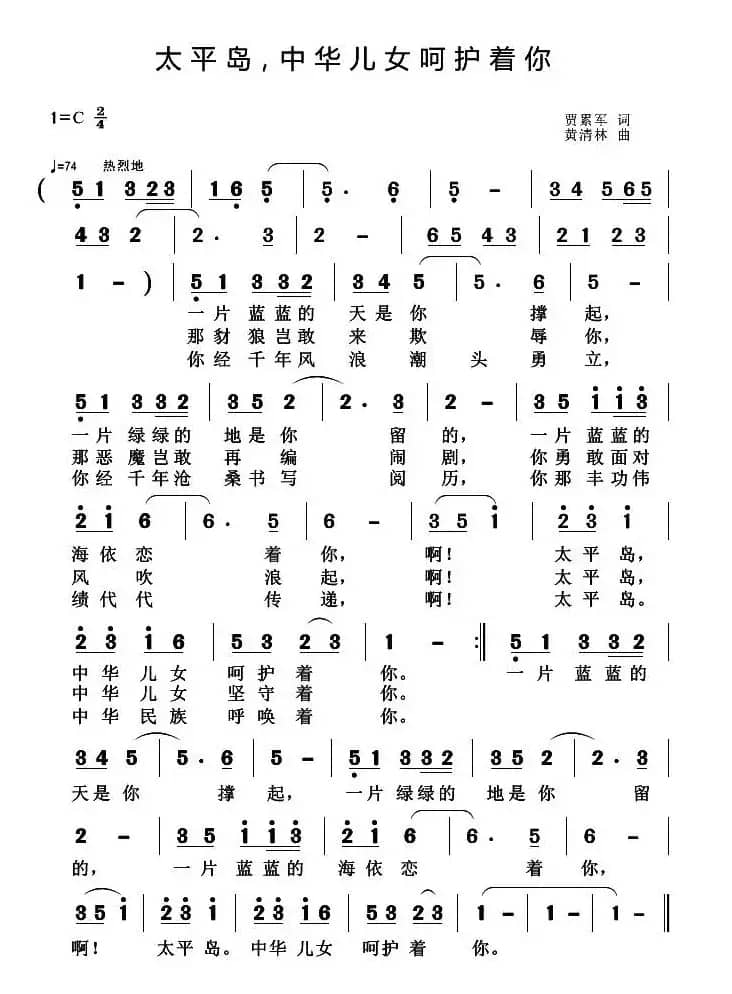 太平岛,中华儿女呵护着你
1=C 2/4
贾累军 词
黄清林 曲
♩=74 热烈地
( 5̣ 1 3 2 3 | 1 6̣ 5̣ | 5̣ . 6̣ | 5̣ - | 3 4 5 6 5 |
4 3 2 | 2 . 3 | 2 - | 6 5 4 3 | 2 1 2 3 |
1 - ) | 5̣ 1 3 3 2 | 3 4 5 | 5 . 6 | 5 - |
一片蓝蓝的 天是你 撑起,
那豺狼岂敢 来欺 辱你,
你经千年风 浪潮 头勇立,
5̣ 1 3 3 2 | 3 5 2 | 2 . 3 | 2 - | 3 5 1̇ 1̇ 3̇ |
一片绿绿的 地是你 留的, 一片蓝蓝的
那恶魔岂敢 再编 闹剧, 你勇敢面对
你经千年沧 桑书写 阅历, 你那丰功伟
2̇ 1̇ 6 | 6 . 5 | 6 - | 3 5 1̇ | 2̇ 3̇ 1̇ |
海依恋 着你, 啊! 太平岛,
风吹 浪起, 啊! 太平岛,
绩代代 传递, 啊! 太平岛。
2̇ 3̇ 1̇ 6 | 5 3 2 3 | 1 - :‖ 5̣ 1 3 3 2 |
中华儿女 呵护着 你。 一片蓝蓝的
中华儿女 坚守着 你。
中华民族 呼唤着 你。
3 4 5 | 5 . 6 | 5 - | 5̣ 1 3 3 2 | 3 5 2 | 2 . 3 |
天是你 撑起, 一片绿绿的 地是你 留
2 - | 3 5 1̇ 1̇ 3̇ | 2̇ 1̇ 6 | 6 . 5 | 6 - |
的, 一片蓝蓝的 海依恋 着你,
3 5 1̇ | 2̇ 3̇ 1̇ | 2̇ 3̇ 1̇ 6 | 5 3 2 3 | 1 - | 1 - ‖
啊! 太平岛。中华儿女 呵护着 你。